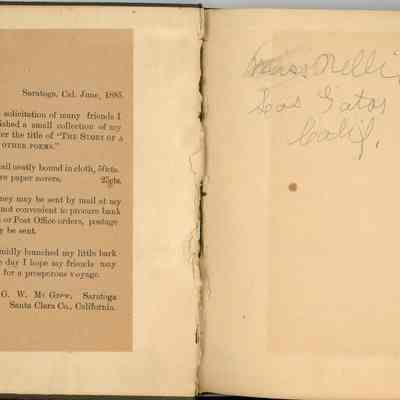 Saratoga, Cal. June, 1885.
solicitation of many friends I
ished a small collection of my
er the title of "The Story of a
other poems."
ail neatly bound in cloth, 50cts.
re paper covers. 25cts.
ney may be sent by mail at my
not convenient to procure bank
or Post Office orders, postage
y be sent.
midly launched my little bark
e day I hope my friends may
for a prosperous voyage.
G. W. Mc Grew, Saratoga
Santa Clara Co., California.
Miss Nelli
Los Gatos
Calif.